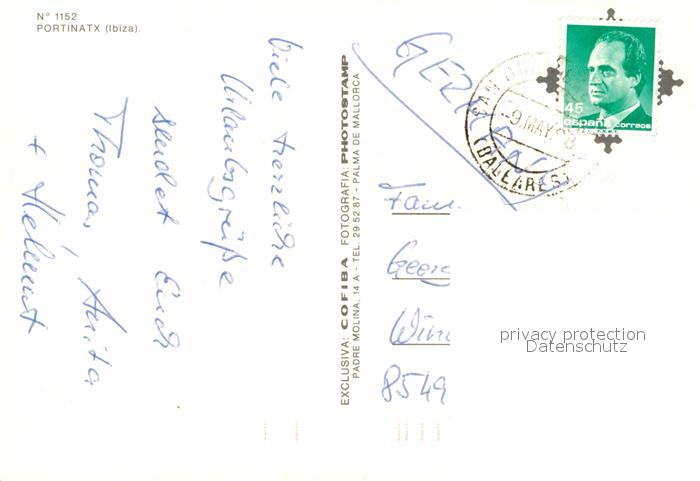 N° 1152
PORTINATX (Ibiza).
Viele herzliche
Urlaubsgrüße
sendet Euch
Thomas, Anita
+ Helmut
EXCLUSIVA: COFIBA FOTOGRAFIA: PHOTOSTAMP
PADRE MOLINA, 14 A - TEL. 29 52 87 - PALMA DE MALLORCA
GERMANY
45
españa correos
SAN JUAN
-9 MAY
(BALEARES)
Fam.
Georg
Win
8549
privacy protection
Datenschutz